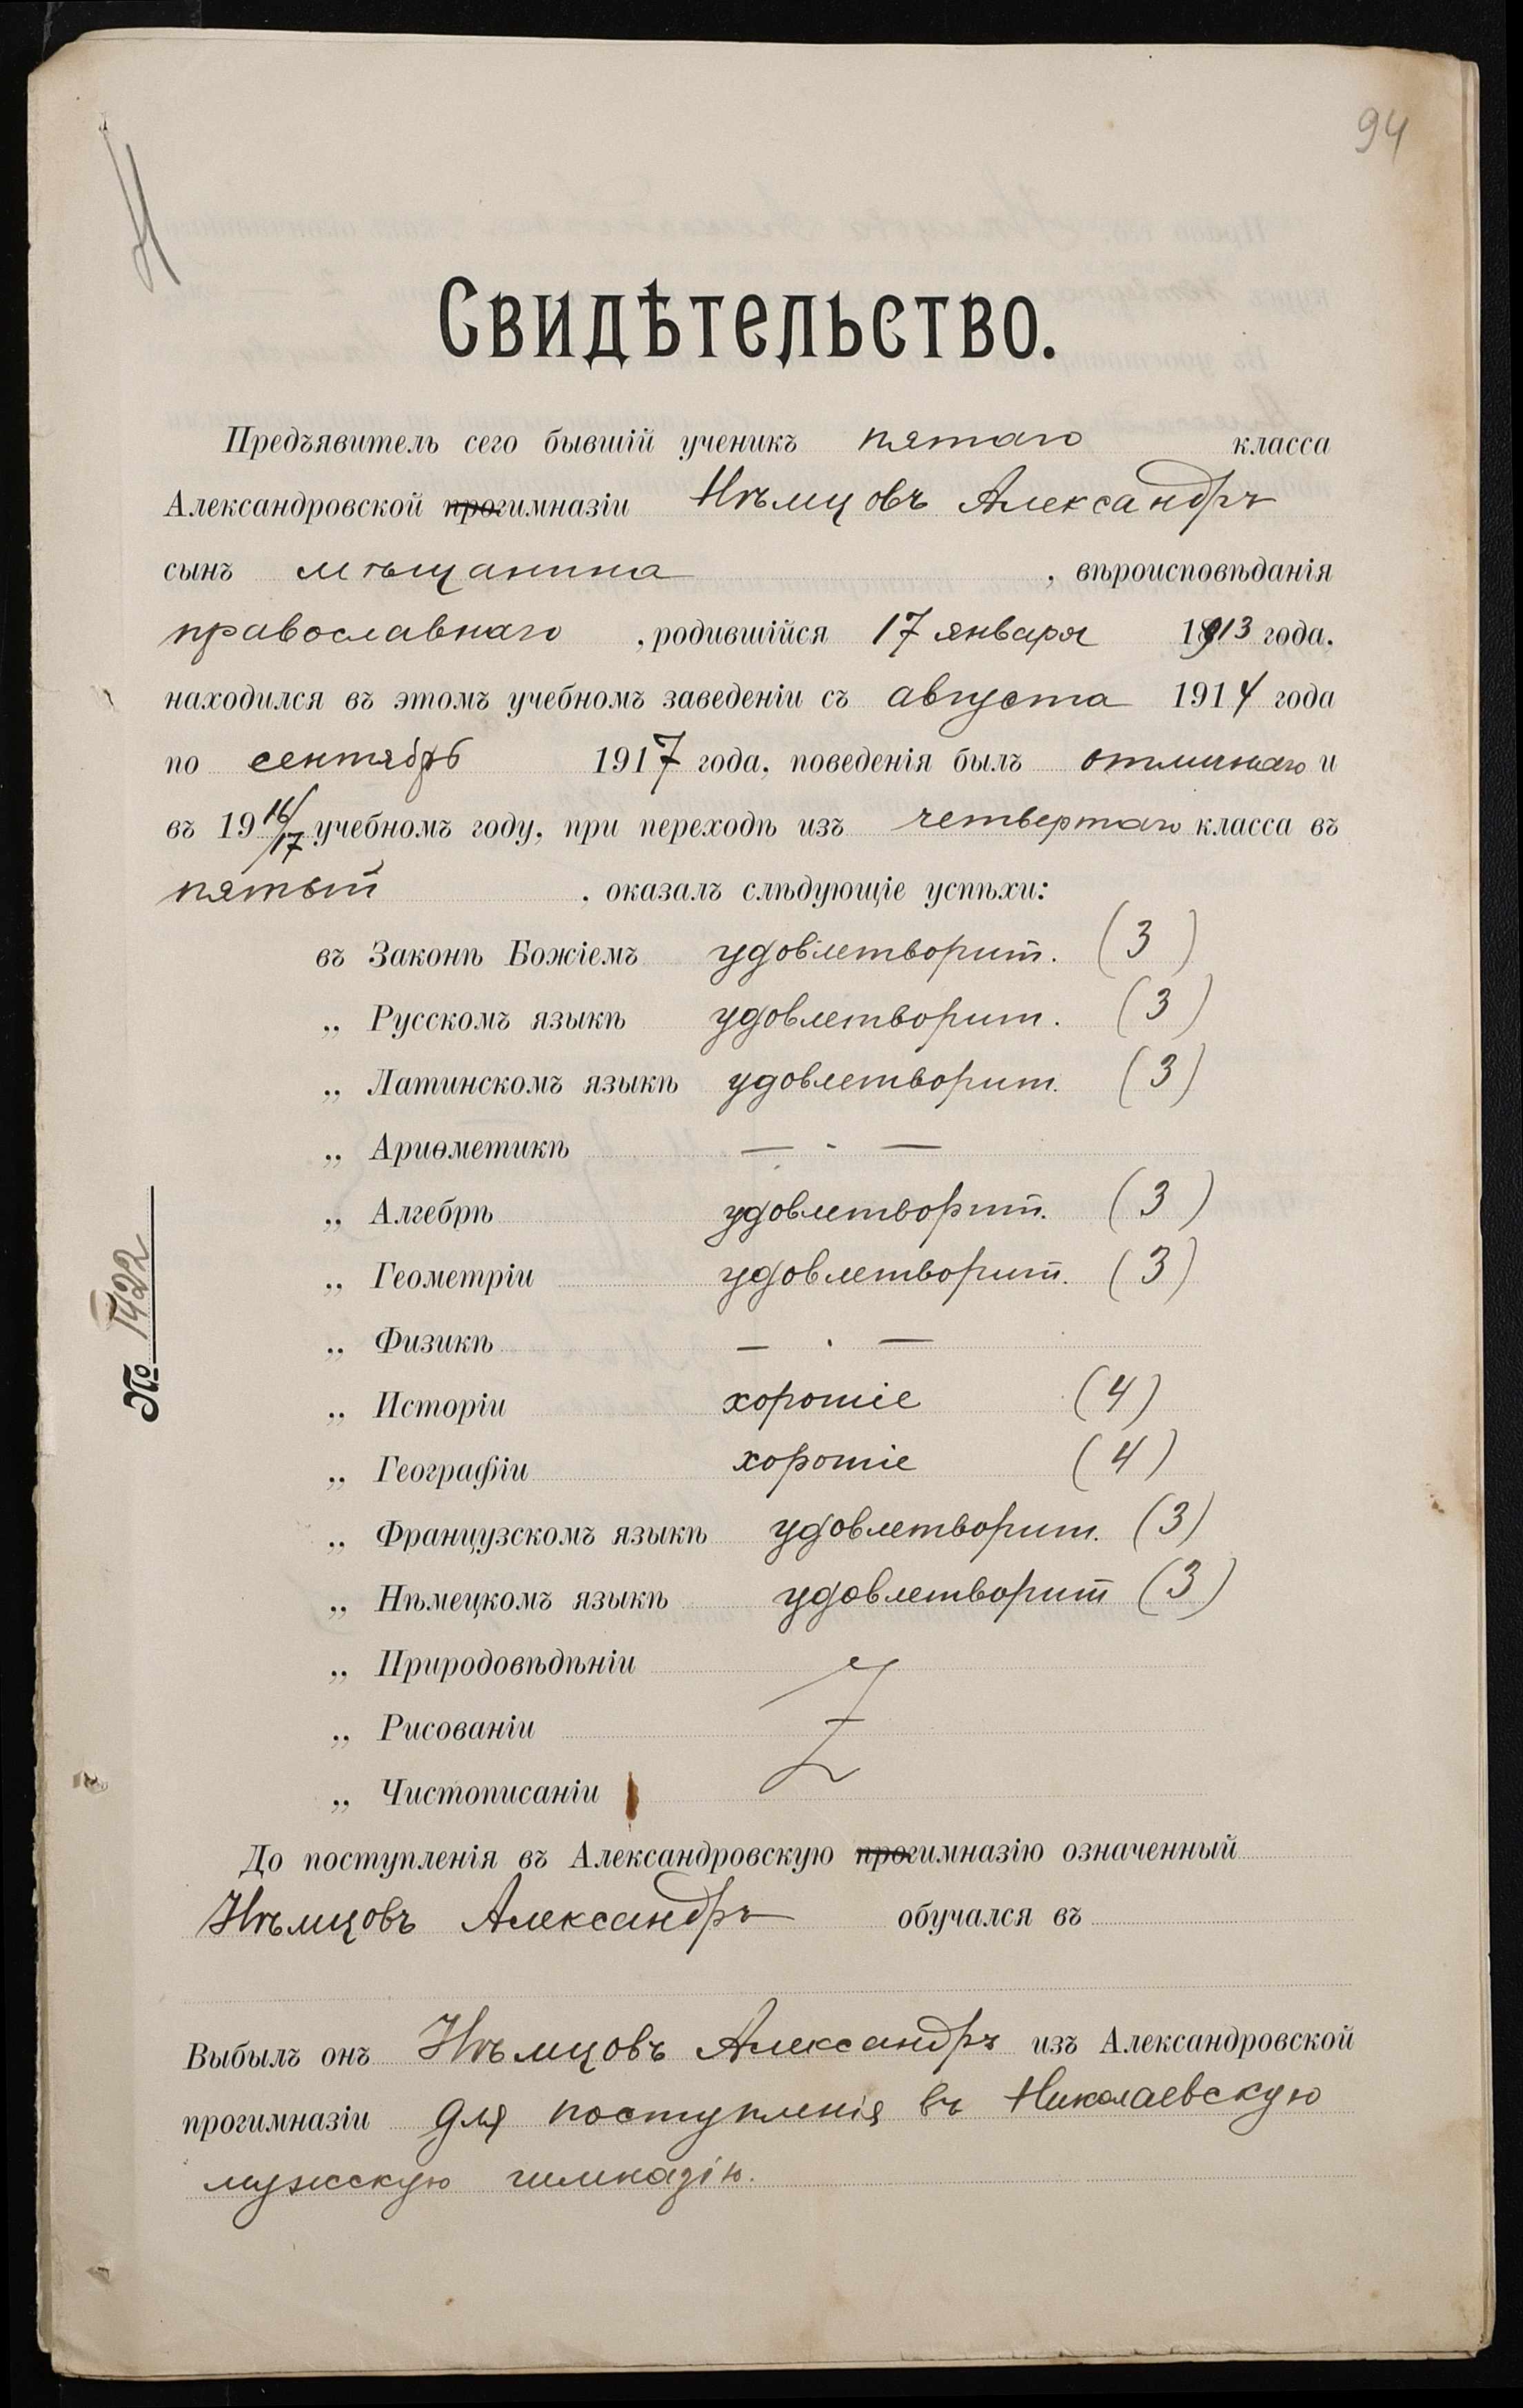 94
Н
Свидѣтельство.
Предъявитель сего бывшій ученикъ пятаго класса
Александровской прогимназіи Нѣмцовъ Александръ
сынъ мѣщанина , вѣроисповѣданія
православнаго , родившійся 17 января 1913 года,
находился въ этомъ учебномъ заведеніи съ августа 1914 года
по сентябрь 1917 года, поведенія былъ отличнаго и
въ 1916/17 учебномъ году, при переходѣ изъ четвертаго класса въ
пятый , оказалъ слѣдующіе успѣхи:
въ Законѣ Божіемъ удовлетворит. (3)
„ Русскомъ языкѣ удовлетворит. (3)
„ Латинскомъ языкѣ удовлетворит. (3)
„ Ариѳметикѣ — . —
„ Алгебрѣ удовлетворит. (3)
„ Геометріи удовлетворит. (3)
„ Физикѣ — . —
„ Исторіи хорошіе (4)
„ Географіи хорошіе (4)
„ Французскомъ языкѣ удовлетворит. (3)
„ Нѣмецкомъ языкѣ удовлетворит (3)
„ Природовѣдѣніи
„ Рисованіи
„ Чистописаніи
До поступленія въ Александровскую прогимназію означенный
Нѣмцовъ Александръ обучался въ
Выбылъ онъ Нѣмцовъ Александръ изъ Александровской
прогимназіи для поступленія въ Николаевскую
мужскую гимназію.
№ 1422